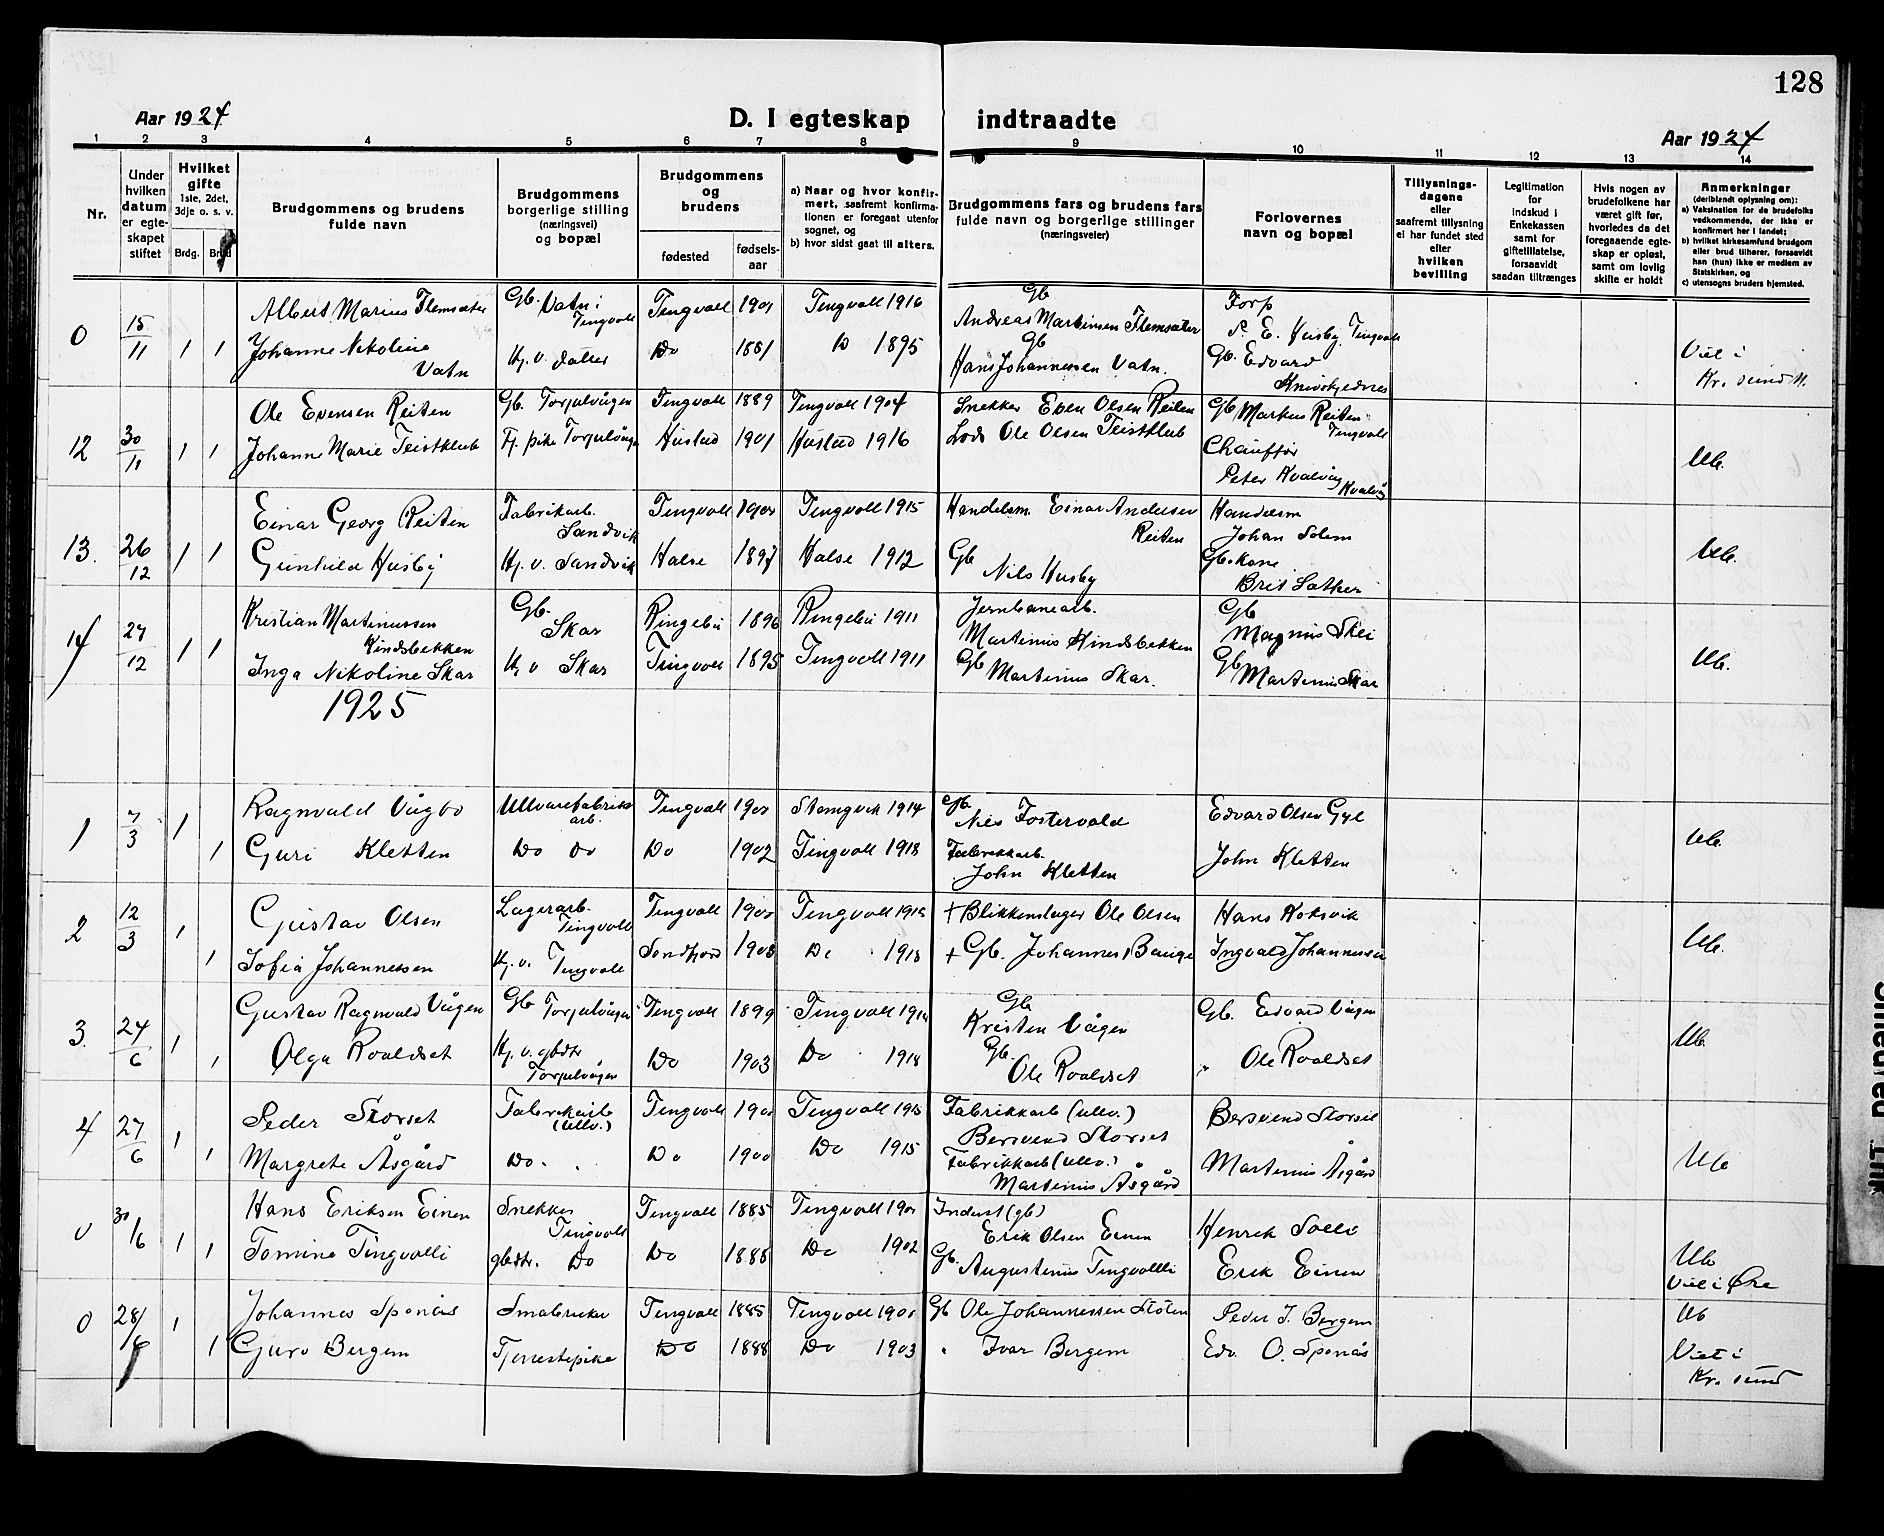 128
Aar 1924
D. I egteskap indtraadte
Aar 1924
1 2 3 4 5 6 7 8 9 10 11 12 13 14
Nr.
Under hvilken datum er egteskapet stiftet
Hvilket gifte 1ste, 2det, 3dje o. s. v.
Brdg. Brud
Brudgommens og brudens fulde navn
Brudgommens borgerlige stilling (næringsvei) og bopæl
Brudgommens og brudens
fødested
fødselsaar
a) Naar og hvor konfirmert, saafremt konfirmationen er foregaat utenfor sognet, og
b) hvor sidst gaat til alters.
Brudgommens fars og brudens fars fulde navn og borgerlige stillinger (næringsveier)
Forlovernes navn og bopæl
Tillysningsdagene eller saafremt tillysning ei har fundet sted eller hvilken bevilling
Legitimation for indskud i Enkekassen samt for giftetillatelse, forsaavidt saadan tiltrænges
Hvis nogen av brudefolkene har været gift før, hvorledes da det foregaaende egteskap er opløst, samt om lovlig skifte er holdt
Anmerkninger (deriblandt oplysning om):
a) Vaksination for de brudefolks vedkommende, der ikke er konfirmert her i landet;
b) hvilket kirkesamfund brudgom eller brud tilhører, forsaavidt han (hun) ikke er medlem av Statskirken, og
c) utensogns bruders hjemsted.
0 15/11 1 1
Albert Marius Flemsæter Gb. Vatn i Tingvoll Tingvoll 1901 Tingvoll 1916 Gb Andreas Martinsen Flemsæter Forp P. E. Husby, Tingvoll
Johanne Nikoline Vatn Hj. v. datter Do 1881 D 1895 Gb Hans Johannessen Vatn. Gb. Edvard Knivskjednes Viel i Kr. sund N.
12 30/11 1 1
Ole Evensen Reiten Gb. Torjulvågen Tingvoll 1889 Tingvoll 1904 Snekker Even Olsen Reiten Gb Markus Reiten Tingvoll
Johanne Marie Teistklub Tj. pike Torjulvågen Hustad 1901 Hustad 1916 Lods Ole Olsen Teistklub Chauffør Peter Kvalvåg Kvalvåg Ub.
13. 26/12 1 1
Einar Georg Reiten Fabrikarb. Sandvik Tingvoll 1900 Tingvoll 1915 Handelsm. Einar Andersen Reiten Handelsm Johan Solem
Gunhild Husby Hj. v. Sandvik Halse 1897 Halse 1912 Gb Nils Husby Gb.kone Brit Sæther Ub.
14 27/12 1 1
Kristian Martinussen Kindsbekken Gb. Skar Ringebu 1896 Ringebu 1911 Jernbanearb. Martinus Kindsbekken Gb Magnus Skei
Inga Nikoline Skar Hj v Skar Tingvoll 1895 Tingvoll 1911 Gb Martinus Skar. Gb Martinus Skar Ub.
1925
1 7/3 1 1
Ragnvald Vågbø Ullvarefabrikkarb. Tingvoll 1900 Stangvik 1914 Gb Nils Fostervold Edvard Olsen Gyl
Guri Kletten Do Do Do 1902 Tingvoll 1918 Fabrikkarb. John Kletten John Kletten Ub.
2 12/3 1 1
Gustav Olsen Lagerarb. Tingvoll Tingvoll 1900 Tingvoll † Blikkenslager Ole Olsen Hans Koksvik
Sofia Johannessen Hj. v. Tingvoll Sondfjord 1903 Do 1918 † Gb. Johannes Bauge Ingvald Johannessen Ub.
3. 24/6 1 1
Gustav Ragnvald Vågen Gb Torjulvågen Tingvoll 1899 Tingvoll 1914 Gb Kristen Vågen Gb. Edvard Vågen
Olga Roaldset Hj. v. gbdtr Torjulvågen Do 1903 Do 1918 Gb. Ole Roaldset " Ole Roaldset Ub.
4 27/6 1 1
Peder Storset Fabrikarb (ullv.) Tingvoll 1900 Tingvoll 1915 Fabrikkarb (ullv.) Bersvend Storset Bersvend Storset
Margrete Åsgård Do. Do 1900 Do 1915 Fabrikkarb (ullv.) Martinus Åsgård Martinus Åsgård Ub
0 30/6 1 1
Hans Eriksen Einen Snekker Tingvoll Tingvoll 1885 Tingvoll 1901 Inderst (gb) Erik Olsen Einen Henrik Solli
Tomine Tingvolli gbdtr. Do Do 1888 Do 1902 Gb. Augustinus Tingvolli Erik Einen Ub Viel i Øre
0 28/6 1 1
Johannes Sponås Småbruker Tingvoll 1885 Tingvoll 1900 Gb Ole Johannessen Støten Peder J. Bergem Ub
Guro Bergem Tjenestepike Do 1888 Do 1903 " Ivar Bergem Edv. O. Sponås Viet i Kr. sund